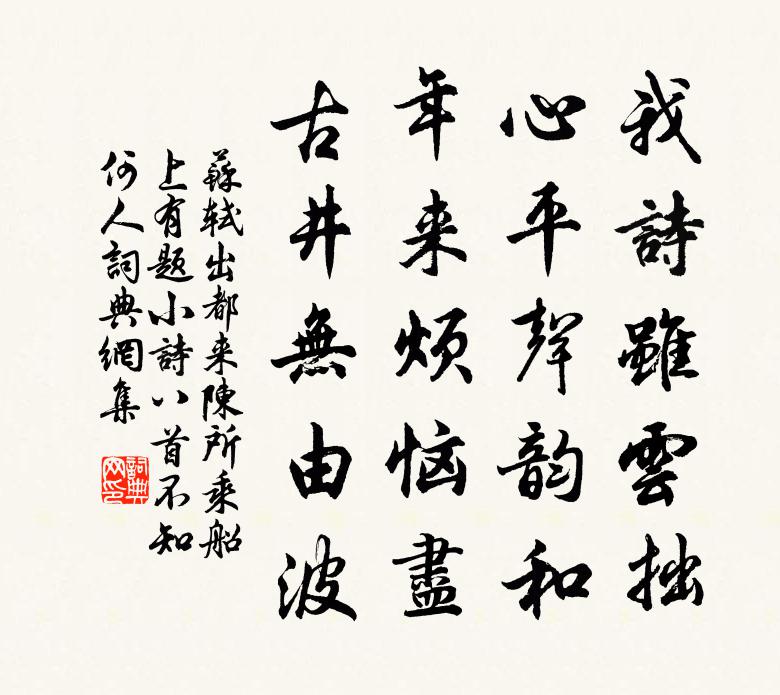 我詩雖雲拙
心平聲韵和
年来烦恼盡
古井無由波
蘇轼出都来陳所乘船
上有题小詩八首不知
何人詞典網集
詞典网印